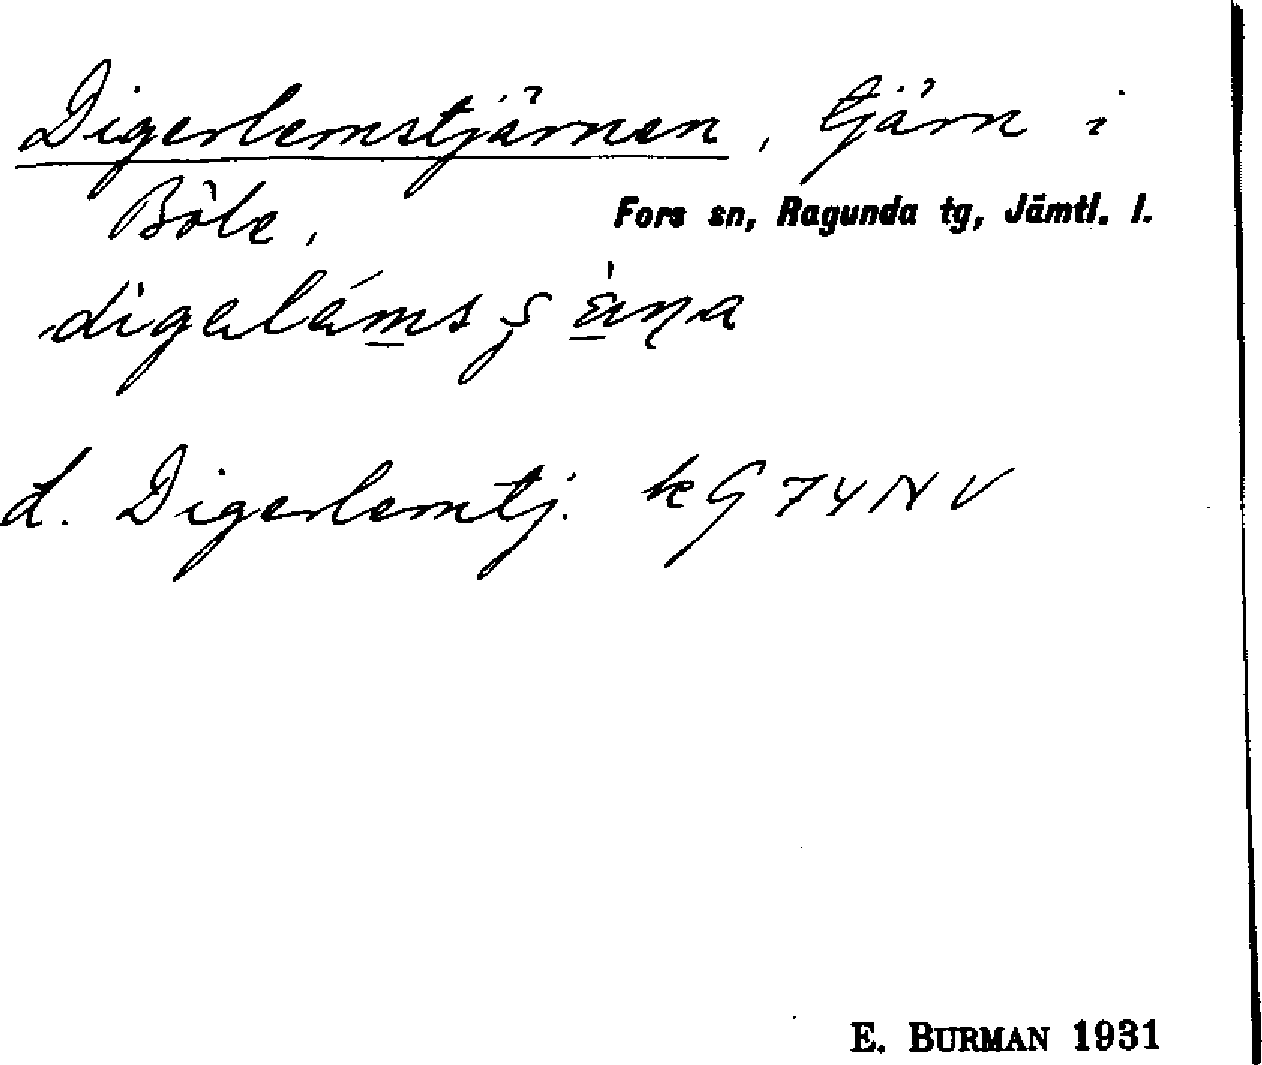 Digerlemstjärnen, tjärn i
Böle, Fors sn, Ragunda tg, Jämtl. l.
d. Digerlemtj. kG 74 NV
E. BURMAN 1931